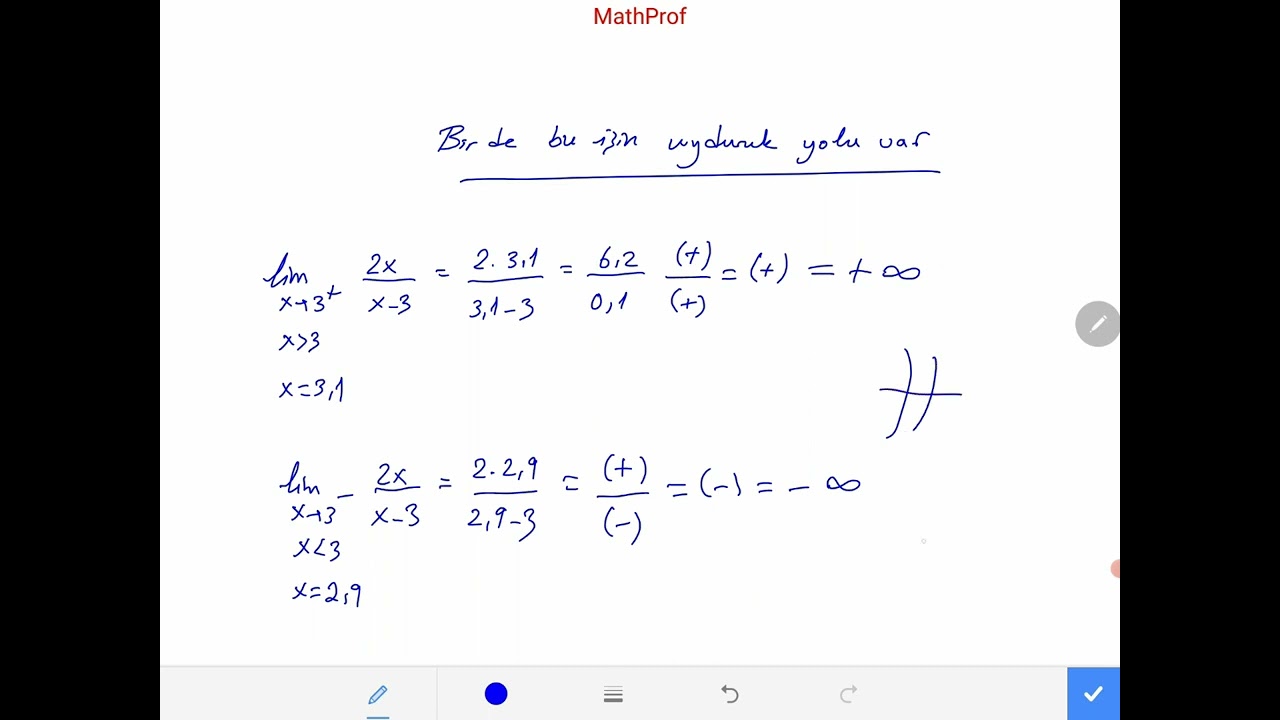 MathProf
Bir de bu işin uyduruk yolu var
lim x→3⁺ 2x/(x-3) = 2.3,1/(3,1-3) = 6,2/0,1 (+)/(+) = (+) = +∞
x>3
x=3,1
lim x→3⁻ 2x/(x-3) = 2.2,9/(2,9-3) = (+)/(-) = (-) = -∞
x<3
x=2,9